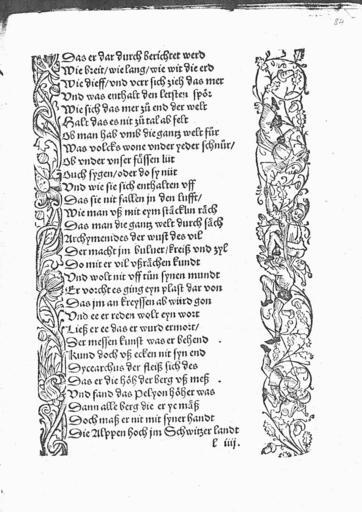 84
Das er dar durch berichtet werd
Wie breit/ wie lang/ wie wit die erd
Wie dieff/ vnd verr sich zieh das mer
Vnd was enthalt den letsten spör
Wie sich das mer zů end der welt
Halt das es nit zů tal ab felt
Ob man hab vmb die gantz welt für
Was volcks wone vnder yeder schnůr/
Ob vnder vnser füssen lüt
Ouch sygen/ oder do sy nüt
Vnd wie sie sich enthalten vff
Das sie nit fallen jn den lufft/
Wie man vß mit eym stäcklin räch
Das man die gantz welt durch säch
Archymenides der wust des vil
Der macht jm bulner/ kreiß vnd zyl
Do mit er vil vßrächen kundt
Vnd wolt nit vff tůn synen mundt
Er vorcht es ging eyn plast dar von
Das jm an kreyssen ab würd gon
Vnd ee er reden wolt eyn wort
Ließ er ee das er wurd ermort/
Der messen kunst was er behend
Kund doch vß ecken nit syn end
Dycearchus der fleiß sich des
Das er die höh der berg vß meß
Vnd fand das Pelyon höher was
Dann alle berg die er ye mäß
Doch maß er nit mit syner handt
Die Alppen hoch jm Schwitzer landt
l iiij.